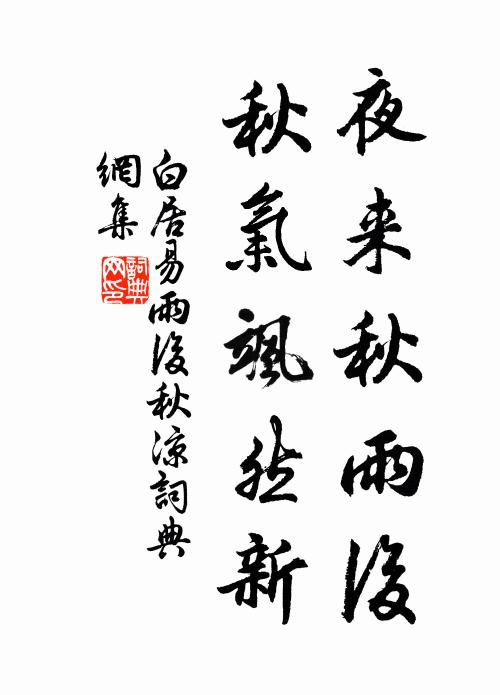 夜来秋雨後
秋氣颯然新
白居易雨後秋涼詞典
網集
詞典
网印